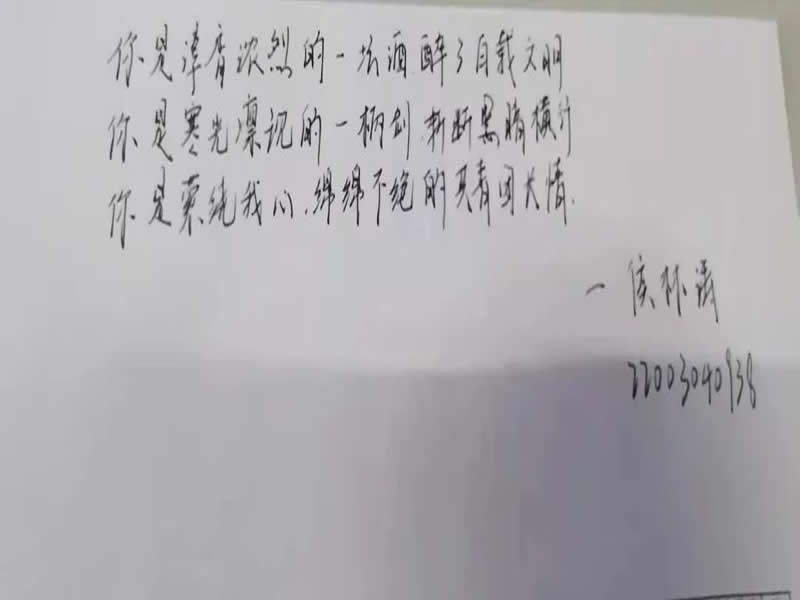 你是清香浓烈的一坛酒,醉了自我文明
你是寒光凛冽的一柄剑,斩断黑暗横行
你是萦绕我心,绵绵不绝的共青团长情.
一 侯林涛
22003040938